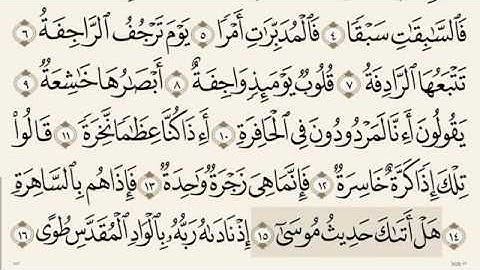 فَٱلسَّٰبِقَٰتِ سَبۡقٗا ٤ فَٱلۡمُدَبِّرَٰتِ أَمۡرٗا ٥ يَوۡمَ تَرۡجُفُ ٱلرَّاجِفَةُ ٦
تَتۡبَعُهَا ٱلرَّادِفَةُ ٧ قُلُوبٞ يَوۡمَئِذٖ وَاجِفَةٌ ٨ أَبۡصَٰرُهَا خَٰشِعَةٞ ٩
يَقُولُونَ أَءِنَّا لَمَرۡدُودُونَ فِي ٱلۡحَافِرَةِ ١٠ أَءِذَا كُنَّا عِظَٰمٗا نَّخِرَةٗ ١١ قَالُواْ
تِلۡكَ إِذٗا كَرَّةٌ خَاسِرَةٞ ١٢ فَإِنَّمَا هِيَ زَجۡرَةٞ وَٰحِدَةٞ ١٣ فَإِذَا هُم بِٱلسَّاهِرَةِ
١٤ هَلۡ أَتَىٰكَ حَدِيثُ مُوسَىٰٓ ١٥ إِذۡ نَادَىٰهُ رَبُّهُۥ بِٱلۡوَادِ ٱلۡمُقَدَّسِ طُوًى ١٦